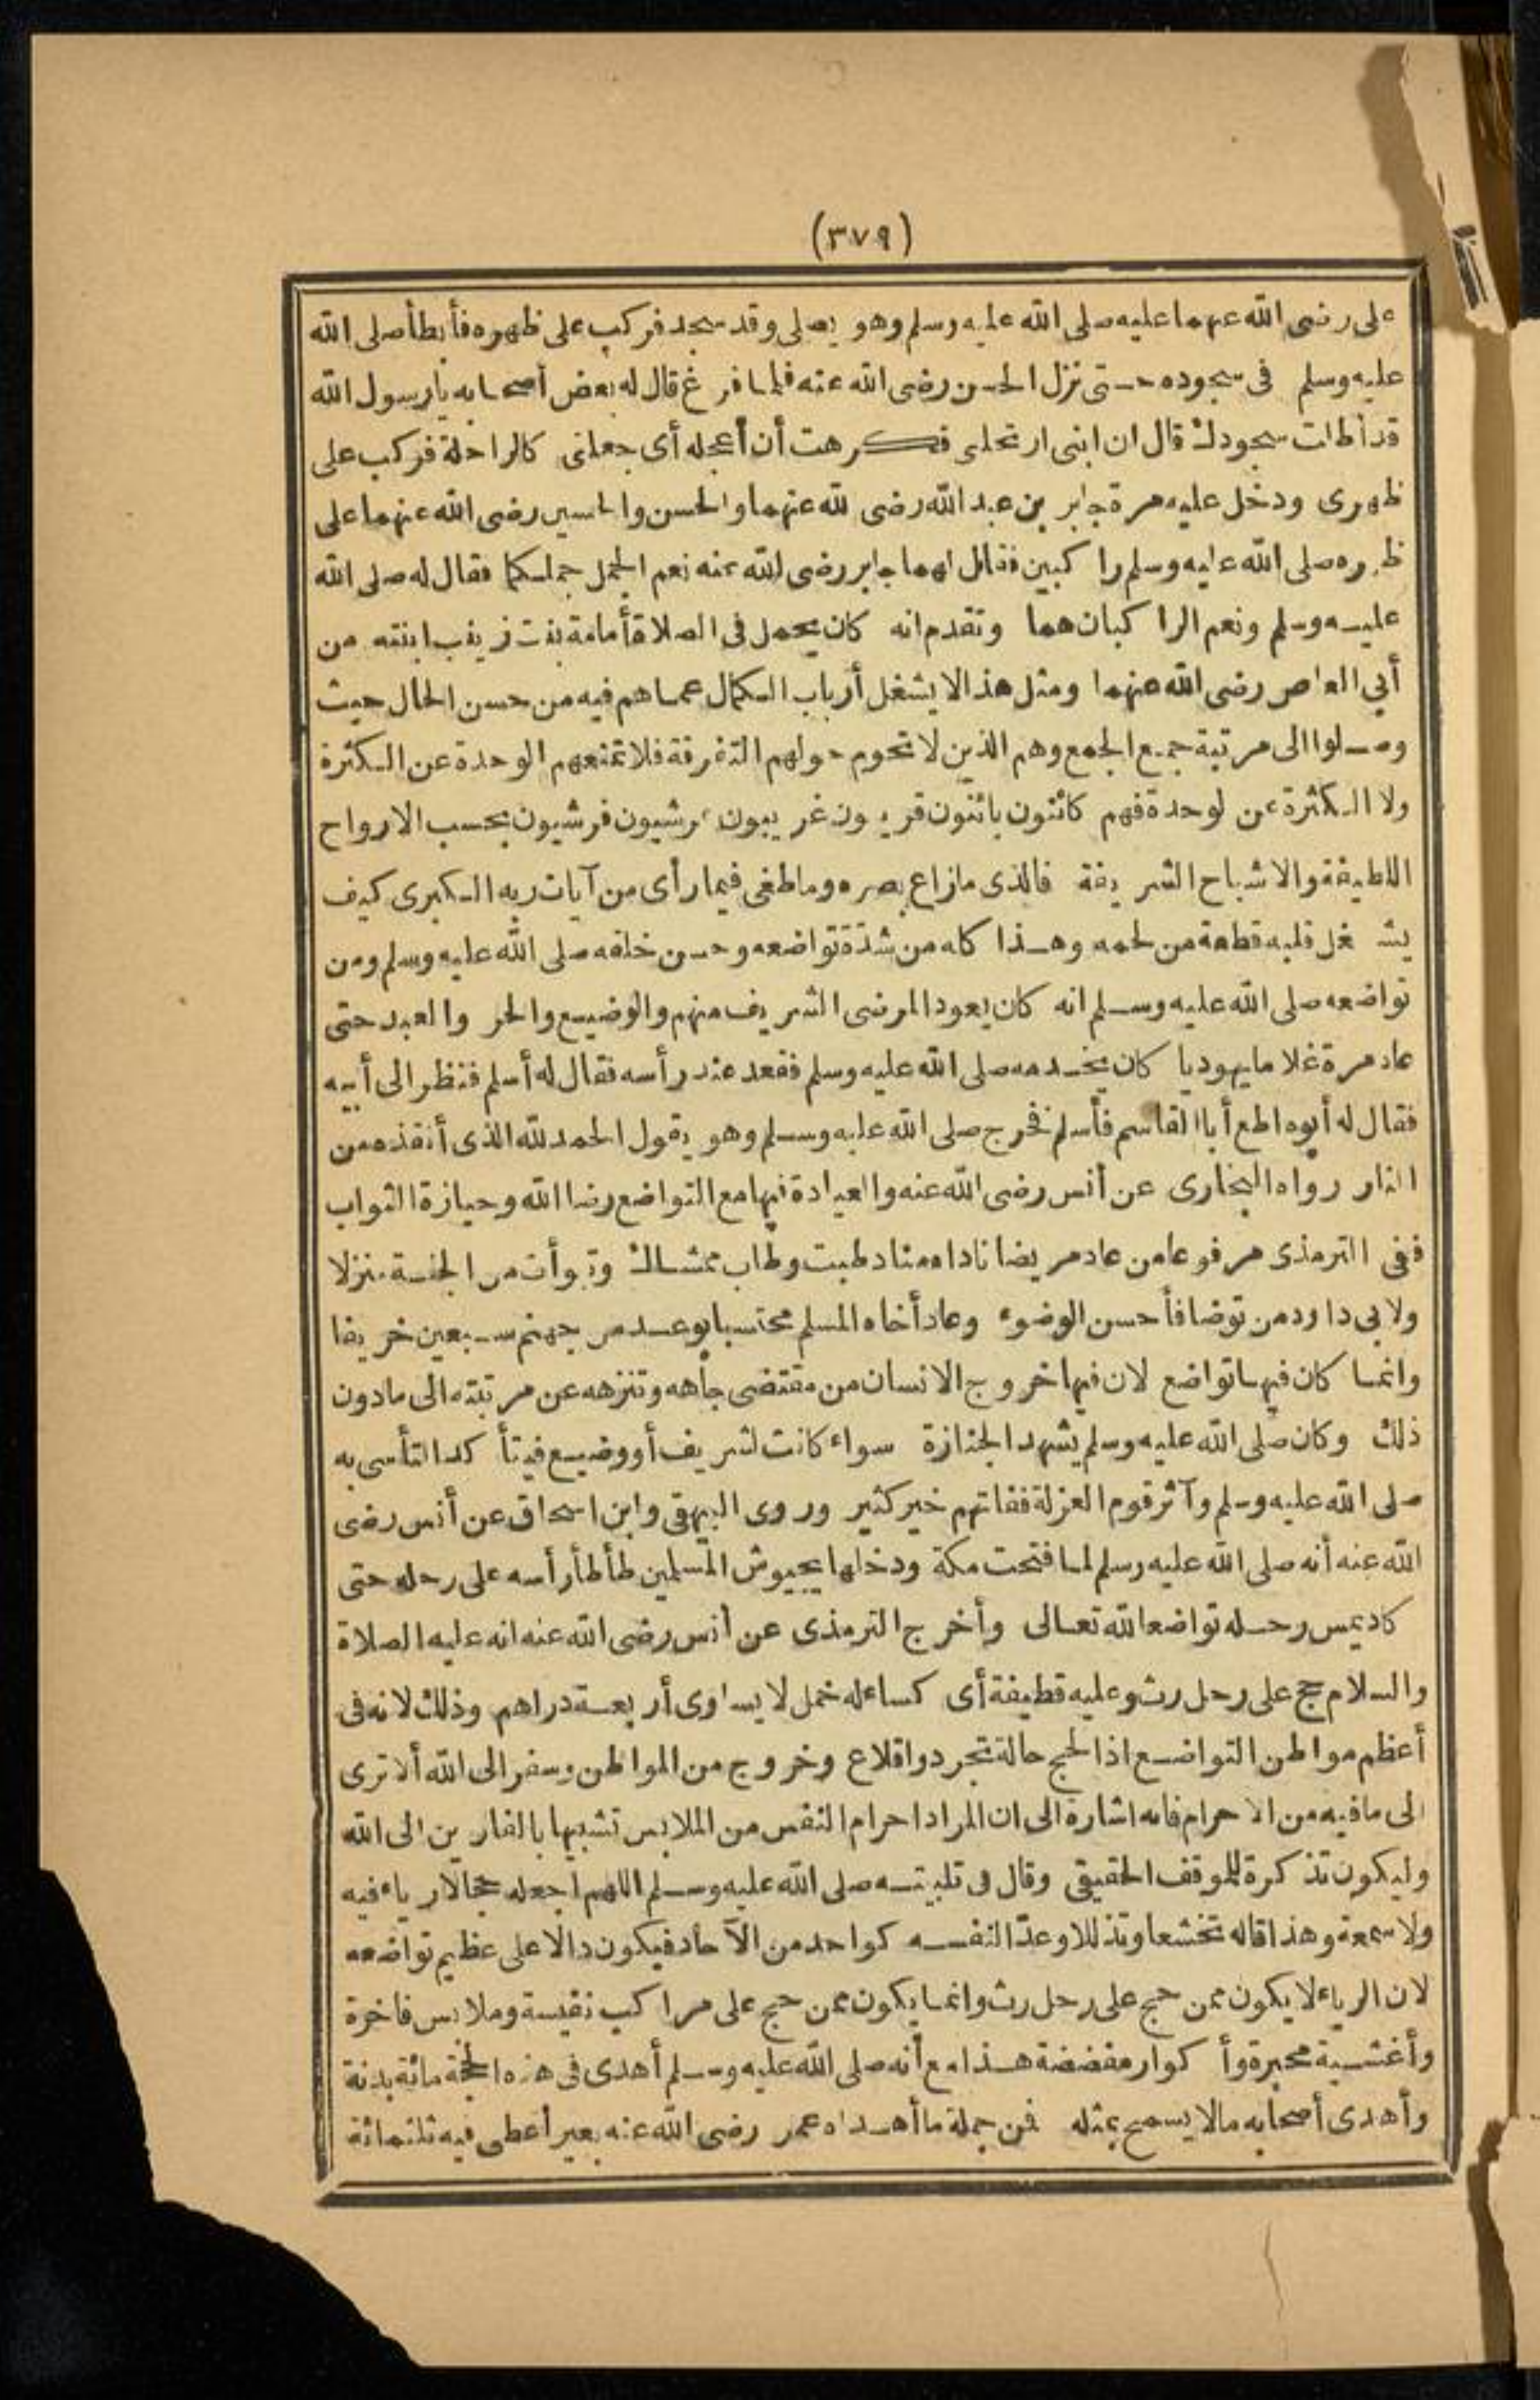 (٣٧٩)
على رضى الله عنهما عليه صلى الله عليه وسلم وهو يصلى وقد سجد فركب على ظهره فأبطأ صلى الله
عليه وسلم فى سجوده حتى نزل الحسن رضى الله عنه فلما فرغ قال له بعض أصحابه يا رسول الله
قد أطلت سجودك قال ان ابنى ارتحلنى فكرهت أن أعجله أى جعلنى كالراحلة فركب على
ظهرى ودخل عليه مرة جابر بن عبد الله رضى لله عنهما والحسن والحسين رضى الله عنهما على
ظهره صلى الله عليه وسلم راكبين فقال لهما جابر رضى الله عنه نعم الجمل جملكما فقال له صلى الله
عليه وسلم ونعم الراكبان هما وتقدم انه كان يحمل فى الصلاة أمامة بنت زينب ابنته من
أبي العاص رضى الله عنهما ومثل هذا لا يشغل أرباب الكمال عما هم فيه من حسن الحال حيث
وصلوا الى مرتبة جميع الجمع وهم الذين لا تحوم حولهم التفرقة فلا تمنعهم الوحدة عن الكثرة
ولا الكثرة عن لوحدة فهم كائنون بائنون قريبون غريبون عرشيون فرشيون بحسب الارواح
اللطيفة والاشباح الشريفة فالذى مازاغ بصره وما طغى فيما رأى من آيات ربه الكبرى كيف
يشغل قلبه قطعة من لحمه وهذا كله من شدّة تواضعه وحسن خلقه صلى الله عليه وسلم ومن
تواضعه صلى الله عليه وسلم انه كان يعود المرضى الشريف منهم والوضيع والحر والعبد حتى
عاد مرة غلاما يهوديا كان يخدمه صلى الله عليه وسلم فقعد عند رأسه فقال له أسلم فنظر الى أبيه
فقال له أبوه اطع أبا القاسم فأسلم فخرج صلى الله عليه وسلم وهو يقول الحمد لله الذى أنقذه من
النار رواه البخارى عن أنس رضى الله عنه والعيادة فيها مع التواضع رضا الله وحيازة الثواب
ففى الترمذى مرفوعا من عاد مريضا ناداه مناد طبت وطاب ممشاك وتبوأت من الجنة منزلا
ولابى داود من توضا فأحسن الوضوء وعاد أخاه المسلم محتسبا بوعد من جهنم سبعين خريفا
وانما كان فيها تواضع لان فيها خروج الانسان من مقتضى جاهه وتنزهه عن مرتبته الى مادون
ذلك وكان صلى الله عليه وسلم يشهد الجنازة سواء كانت لشريف أو وضيع فيتأكد التأسى به
صلى الله عليه وسلم وآثر قوم العزلة ففاتهم خير كثير وروى البيهقى وابن اسحاق عن أنس رضى
الله عنه أنه صلى الله عليه وسلم لما فتحت مكة ودخلها بجيوش المسلمين طأطأ رأسه على رحله حتى
كاد يمس رحله تواضعا لله تعالى وأخرج الترمذى عن أنس رضى الله عنه انه عليه الصلاة
والسلام حج على رحل رث وعليه قطيفة أى كساء له خمل لا يساوى أربعة دراهم وذلك لانه فى
أعظم مواطن التواضع اذ الحج حالة تجرد واقلاع وخروج من المواطن وسفر الى الله ألا ترى
الى ما فيه من الاحرام فانه اشارة الى ان المراد احرام النفس من الملابس تشبيها بالفارين الى الله
وليكون تذكرة للموقف الحقيقى وقال فى تلبيته صلى الله عليه وسلم اللهم اجعله حجا لا رياء فيه
ولا سمعة وهذا قاله تخشعا وتذللا وعدّا لنفسه كواحد من الآحاد فيكون دالا على عظيم تواضعه
لان الرياء لا يكون ممن حج على رحل رث وانما يكون ممن حج على مراكب نفيسة وملابس فاخرة
وأغشية محبرة وأكوار مفضضة هذا مع أنه صلى الله عليه وسلم أهدى فى هذه الحجة مائة بدنة
وأهدى أصحابه مالا يسمح بمثله فمن جملة ما أهداه عمر رضى الله عنه بعير أعطى فيه ثلثمائة